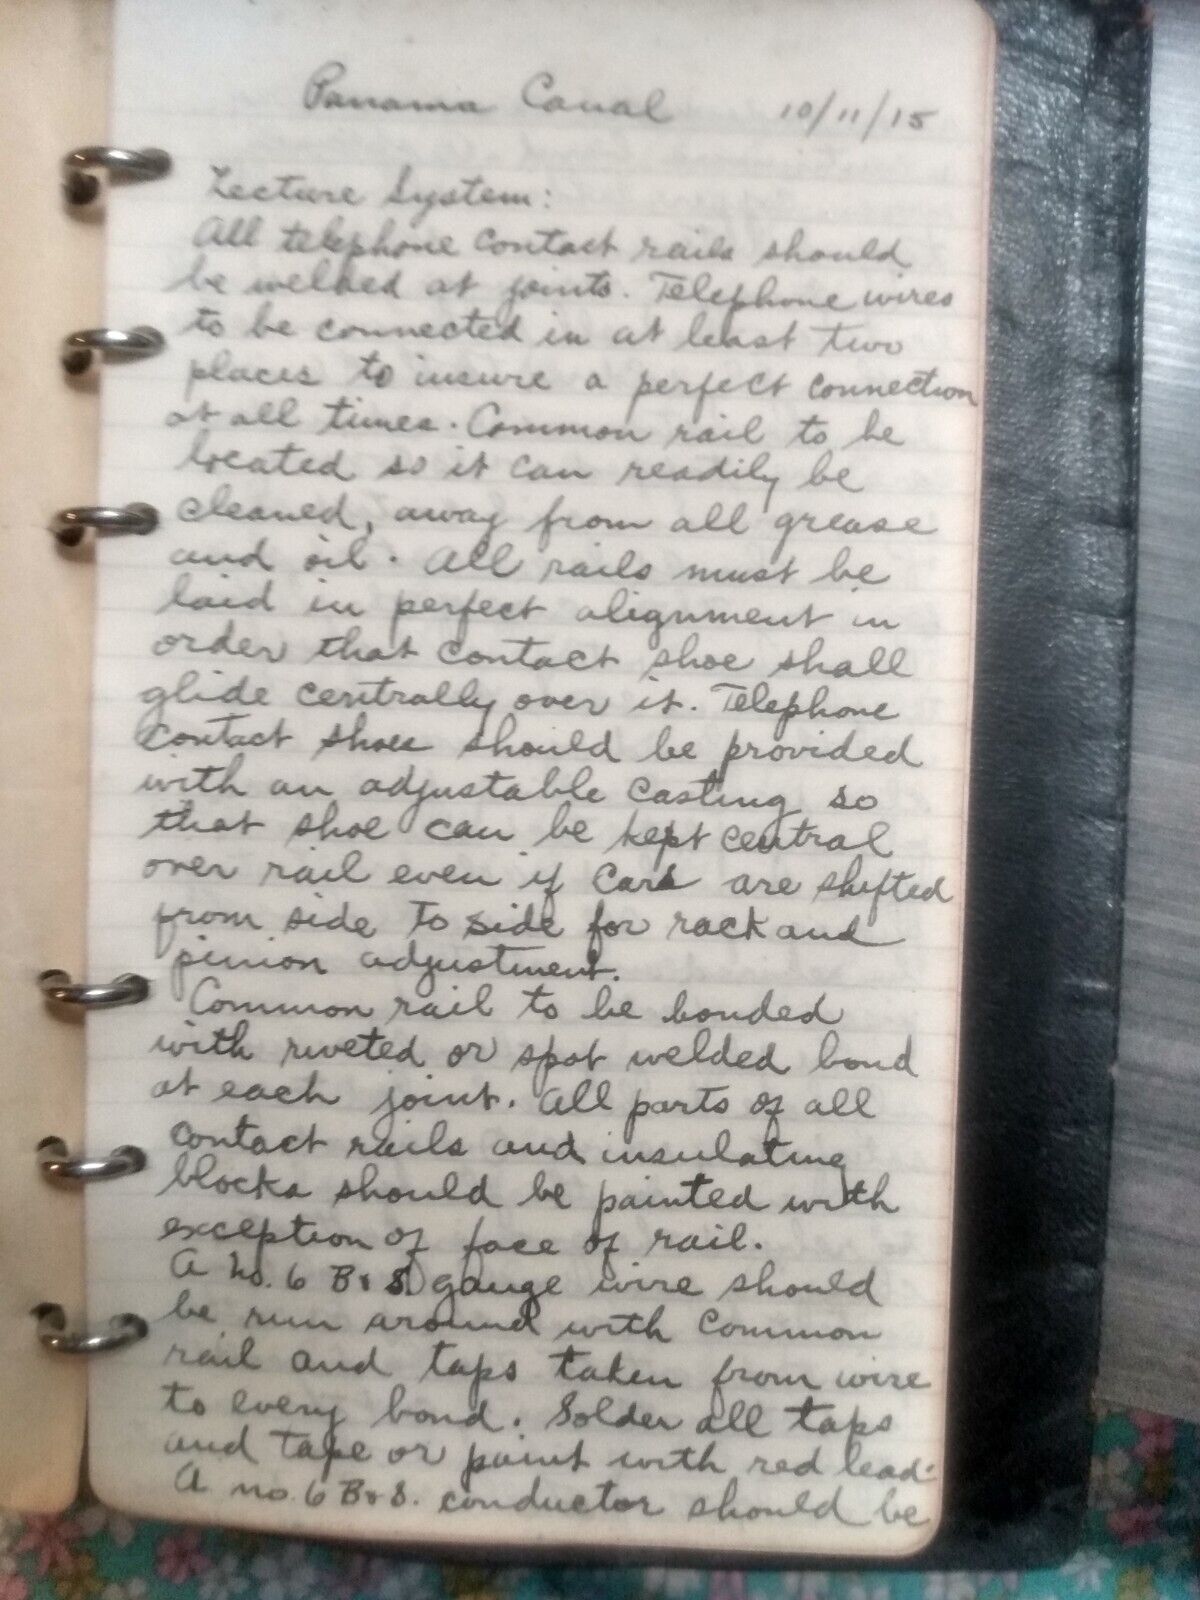 Panama Canal 10/11/15
Lecture System:
All telephone contact rails should
be welded at joints. Telephone wires
to be connected in at least two
places to insure a perfect connection
at all times. Common rail to be
located so it can readily be
cleaned, away from all grease
and oil. All rails must be
laid in perfect alignment in
order that contact shoe shall
glide centrally over it. Telephone
contact shoes should be provided
with an adjustable casting so
that shoe can be kept central
over rail even if cars are shifted
from side to side for rack and
pinion adjustment.
Common rail to be bonded
with riveted or spot welded bond
at each joint. All parts of all
contact rails and insulating
blocks should be painted with
exception of face of rail.
A no. 6 B & S gauge wire should
be run around with common
rail and taps taken from wire
to every bond. Solder all taps
and tape or paint with red lead.
A no. 6 B & S. conductor should be